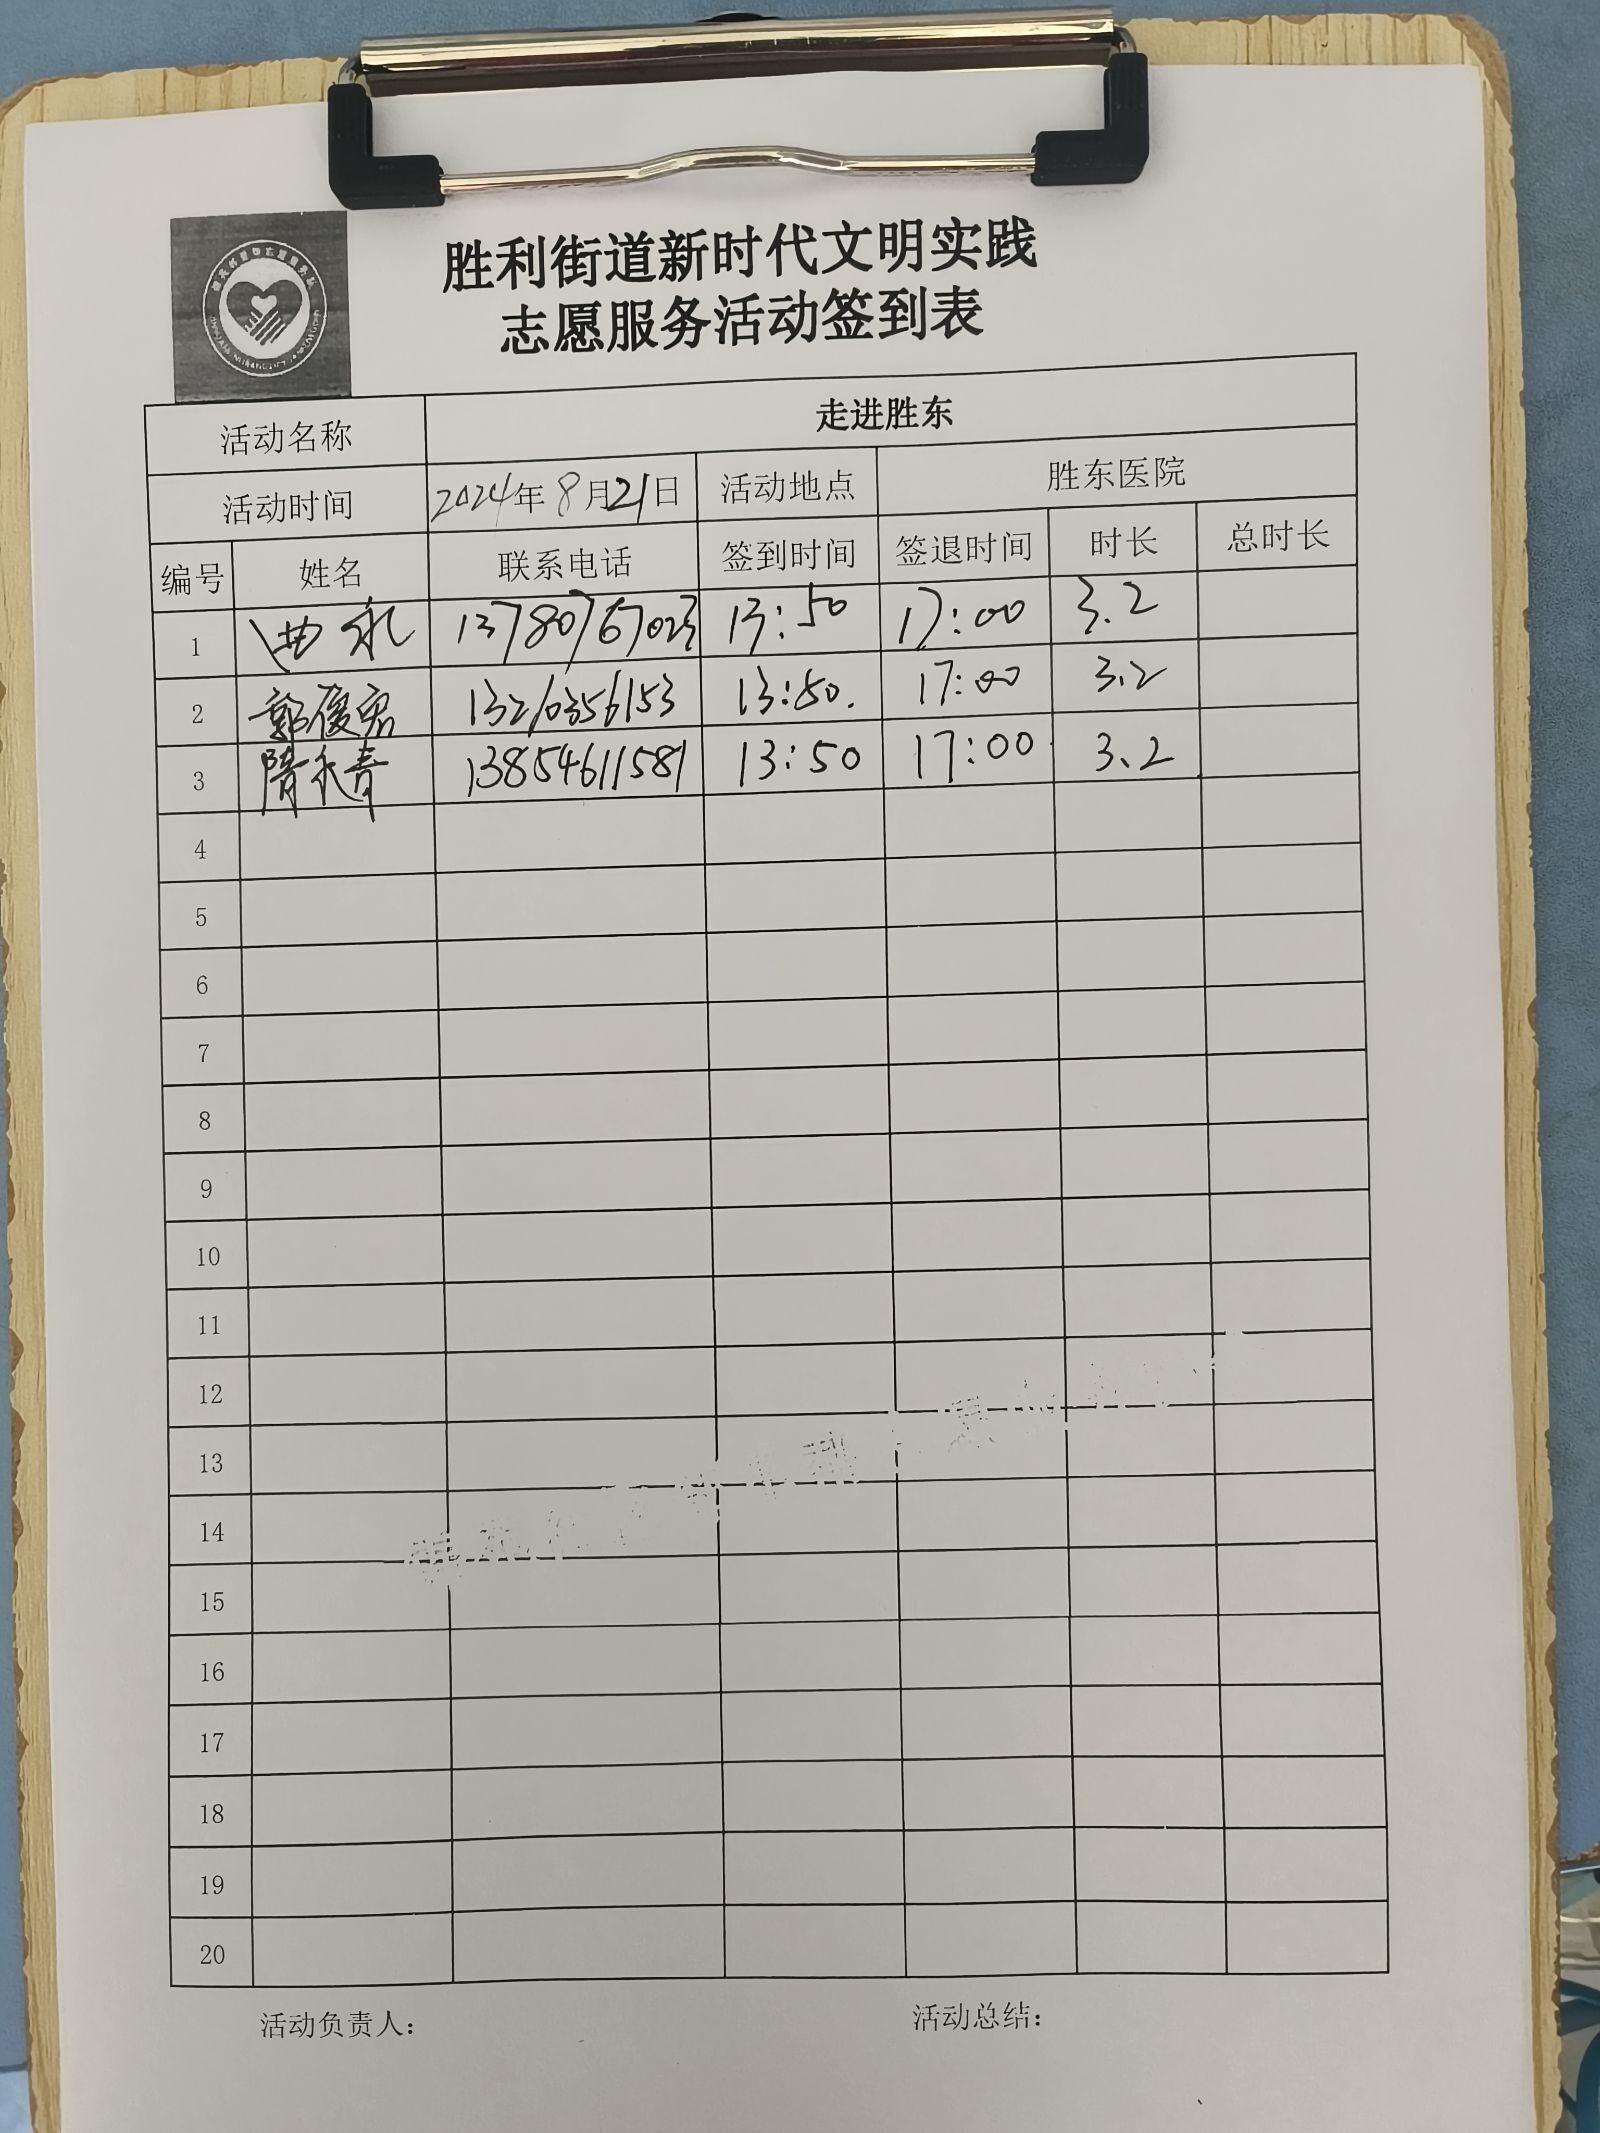 胜利街道新时代文明实践
志愿服务活动签到表
活动名称 走进胜东
活动时间 2024年8月21日 活动地点 胜东医院
编号 姓名 联系电话 签到时间 签退时间 时长 总时长
1 曲永 13780767023 13:50 17:00 3.2
2 郭俊宏 13210356153 13:50. 17:00 3.2
3 隋永青 13854611581 13:50 17:00 3.2
4
5
6
7
8
9
10
11
12
13
14
15
16
17
18
19
20
活动负责人： 活动总结：